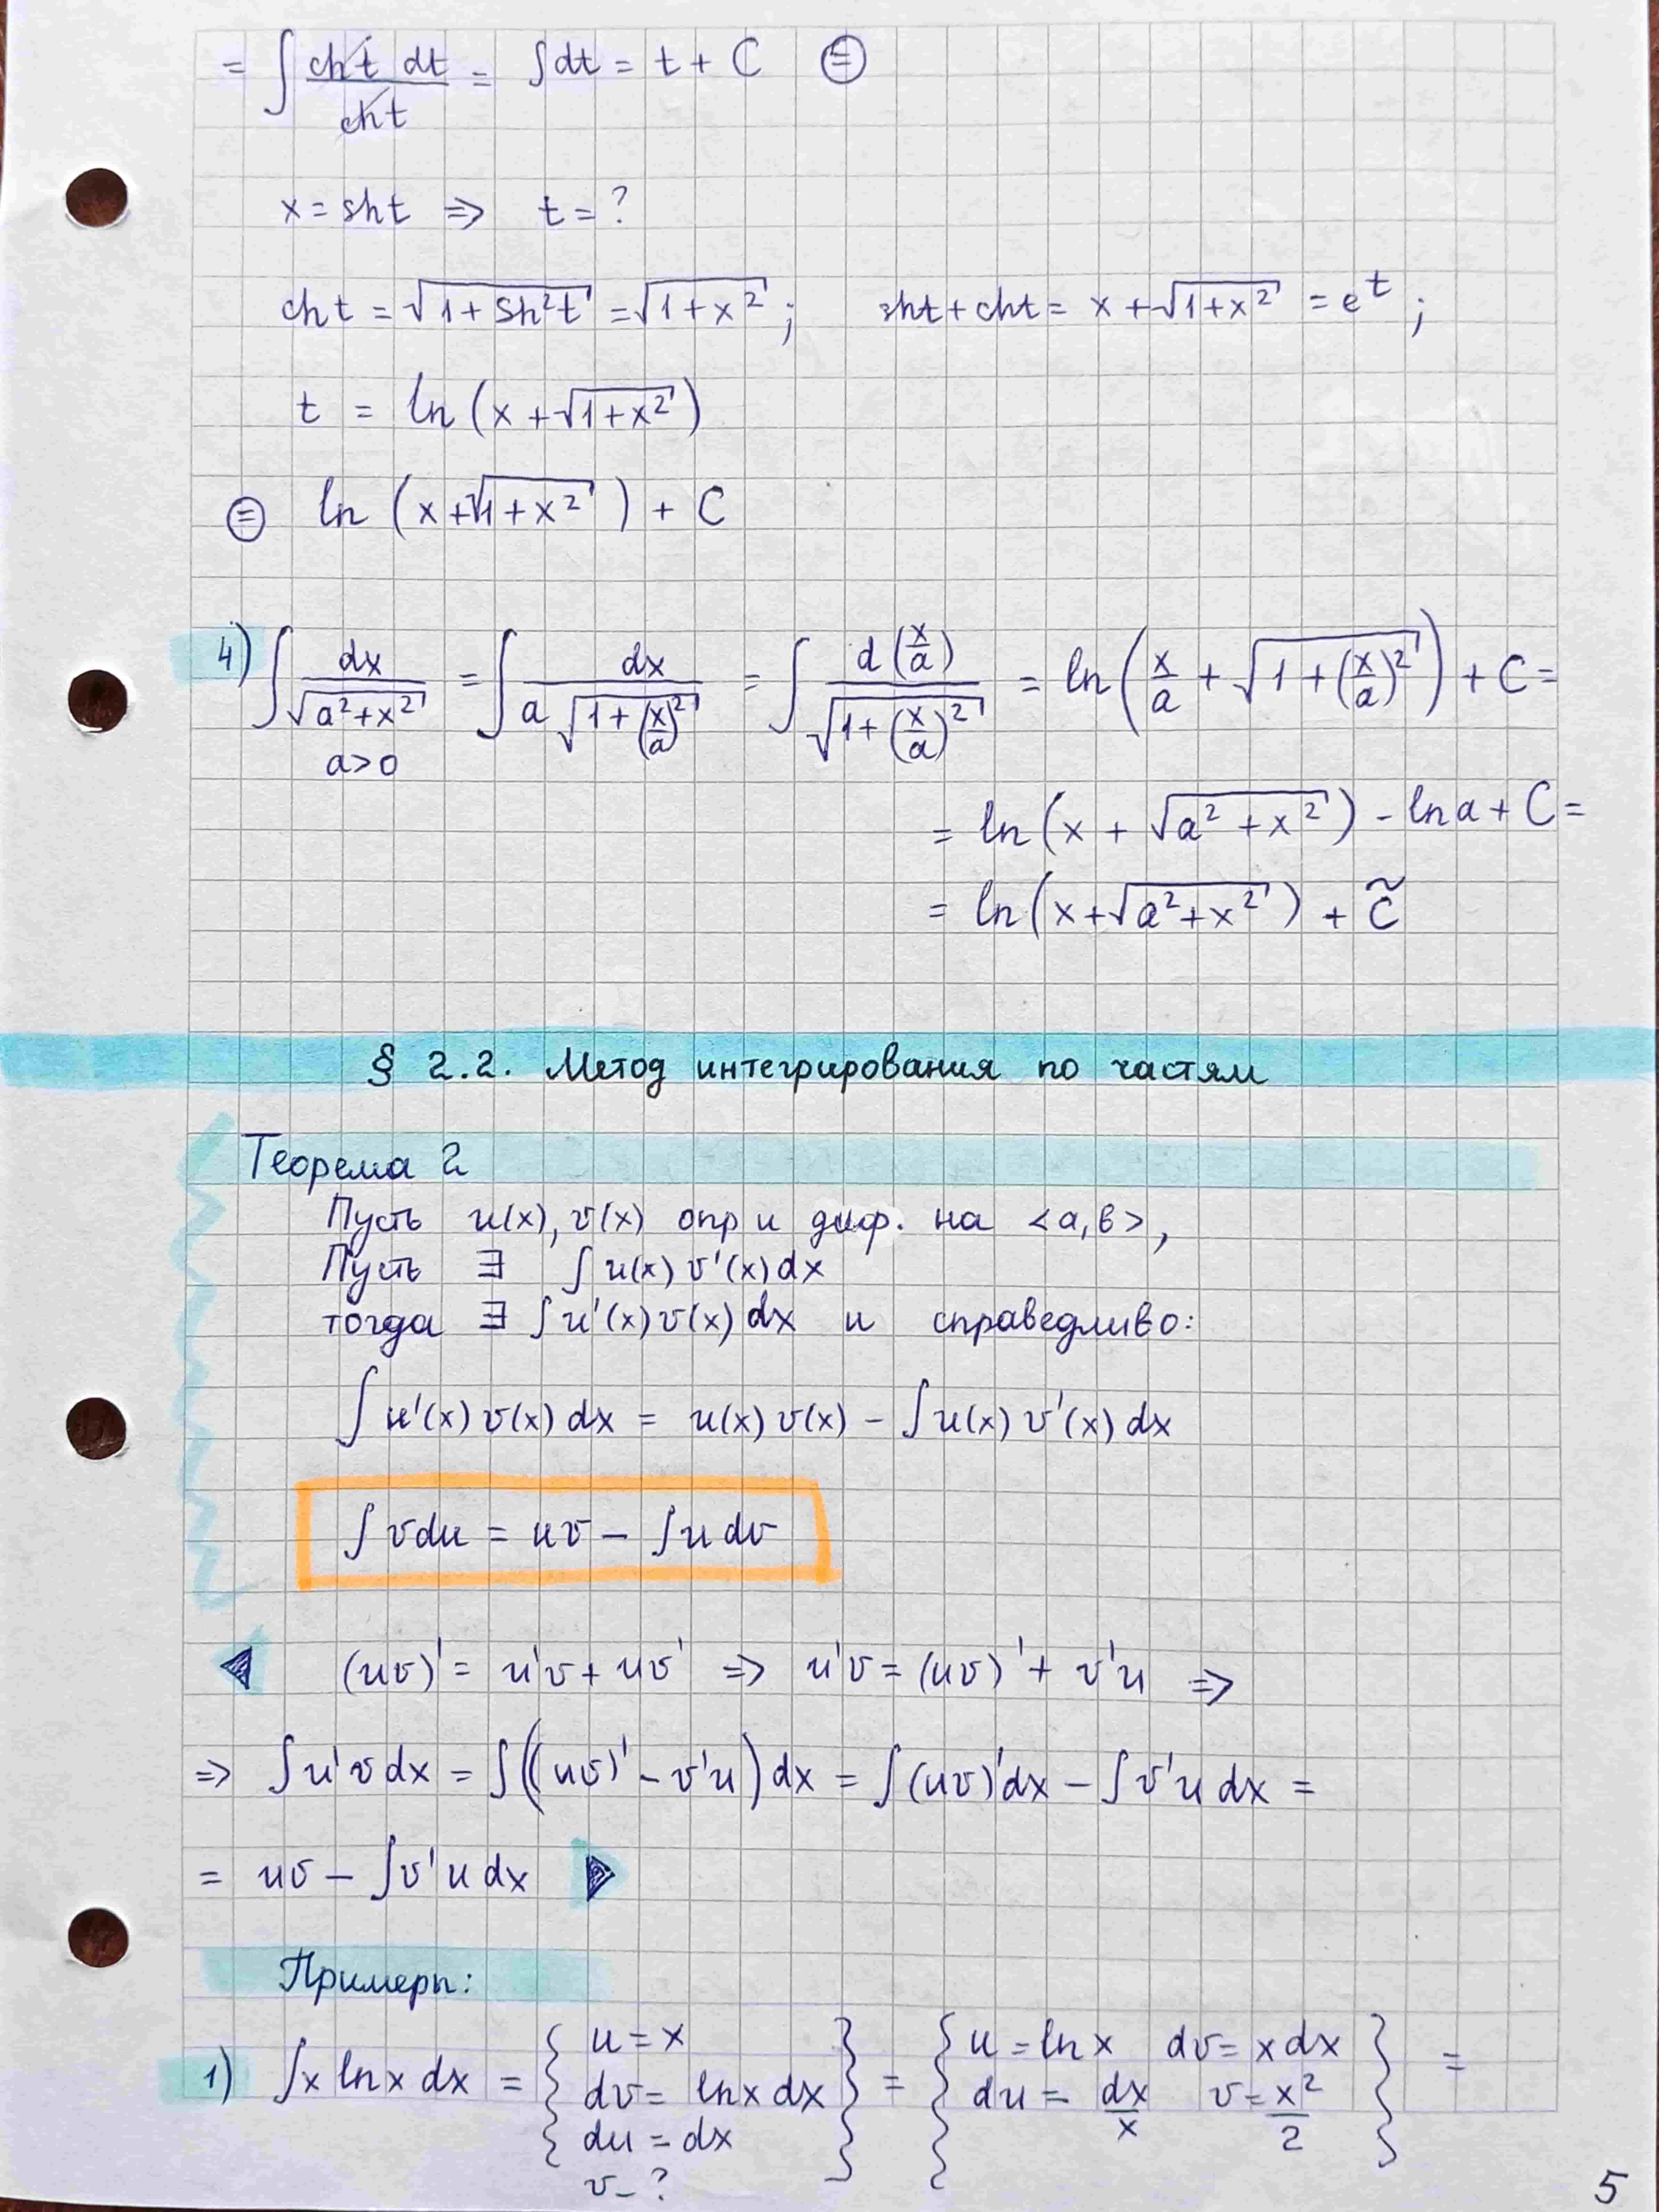 = ∫ ch t dt / ch t = ∫dt = t + C ⊜
x = sht ⇒ t = ?
cht = √(1 + sh²t) = √(1 + x²) ; sht + cht = x + √(1+x²) = e^t ;
t = ln (x + √(1+x²))
⊜ ln (x + √(1+x²)) + C
4) ∫ dx / √(a²+x²) = ∫ dx / (a √(1+(x/a)²)) = ∫ d(x/a) / √(1+(x/a)²) = ln(x/a + √(1+(x/a)²)) + C =
a>0
= ln(x + √(a²+x²)) - ln a + C =
= ln(x+√(a²+x²)) + C̃
§ 2.2. Метод интегрирования по частям
Теорема 2
Пусть u(x), v(x) опр и диф. на <a,b>,
Пусть ∃ ∫ u(x) v'(x) dx
тогда ∃ ∫ u'(x) v(x) dx и справедливо:
∫ u'(x) v(x) dx = u(x) v(x) - ∫ u(x) v'(x) dx
∫ v du = uv - ∫ u dv
◀ (uv)' = u'v + uv' ⇒ u'v = (uv)' + v'u ⇒
⇒ ∫ u'v dx = ∫((uv)' - v'u) dx = ∫(uv)'dx - ∫ v'u dx =
= uv - ∫ v'u dx ▶
Примеры:
1) ∫ x ln x dx = { u = x } = { u = ln x dv = x dx } =
dv = ln x dx du = dx/x v = x²/2
du = dx
v - ?
5